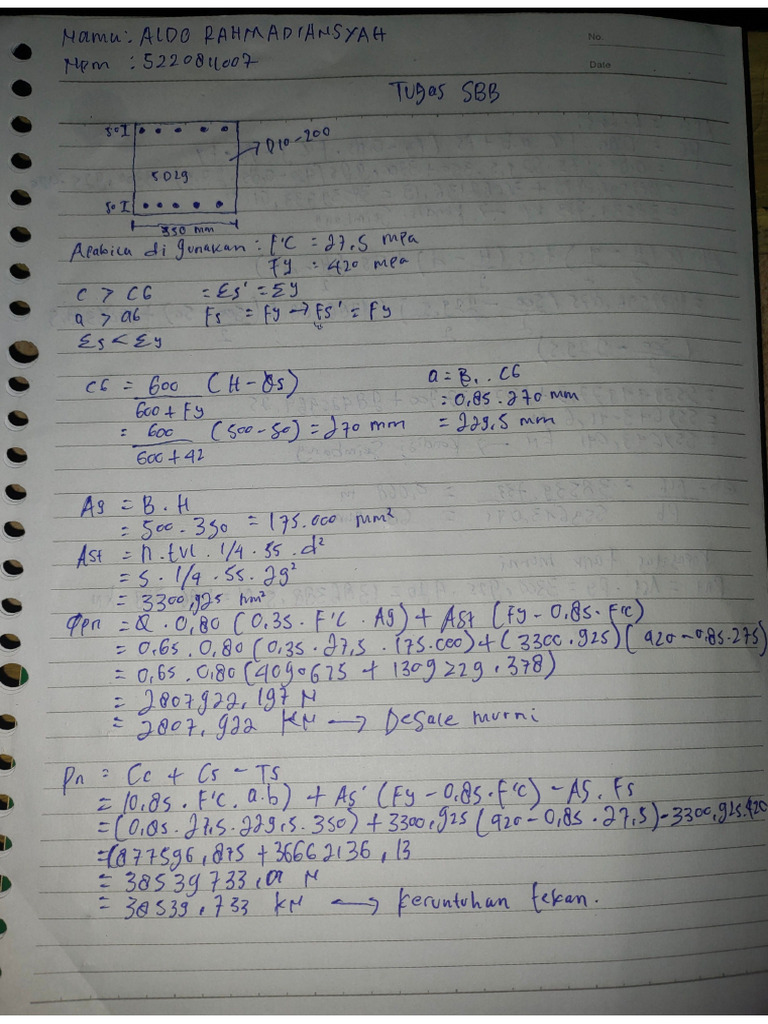 Nama : ALDO RAHMADIANSYAH
No.
Npm : 5220811007
Date
Tugas SBB
50 I
D10-200
5D29
50 I
350 mm
Apabila di gunakan : F'C = 27,5 mpa
Fy = 420 mpa
C > Cb = Es' = Ey
a > ab Fs = Fy → Fs' = Fy
Es < Ey
Cb = 600 (H - ds)
600 + Fy
= 600 (500 - 50) = 270 mm
600 + 42
a = B . Cb
= 0,85 . 270 mm
= 229,5 mm
Ag = B . H
= 500 . 350 = 175.000 mm²
Ast = n . tul . 1/4 . 55 . d²
= 5 . 1/4 . 55 . 29²
= 3300,925 mm²
φpn = Q . 0,80 (0,35 . F'C . Ag) + Ast (Fy - 0,85 . F'c)
= 0,65 . 0,80 (0,35 . 27,5 . 175.000) + (3300.925) (420 - 0,85.275)
= 0,65 . 0,80 (4090625 + 1309229,378)
= 2807922,197 N
= 2807,922 KN → Desak murni
Pn = Cc + Cs - Ts
= (0,85 . F'C . a.b) + As' (Fy - 0,85 . F'c) - As . Fs
= (0,85 . 27,5 . 229,5 . 350) + 3300,925 (420 - 0,85 . 27,5) - 3300,925.420
= (877596,875 + 36662136,13
= 38539733,01 N
= 38539,733 KN → keruntuhan tekan.